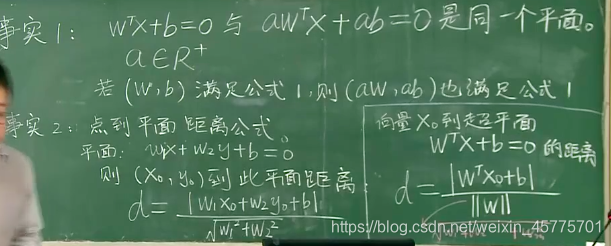 事实1: wᵀx+b=0 与 awᵀx+ab=0 是同一个平面。
a∈R⁺
若(w,b)满足公式1,则(aw,ab)也满足公式1
事实2: 点到平面距离公式。
平面: w₁x+w₂y+b=0
则(x₀,y₀)到此平面距离:
d=|w₁x₀+w₂y₀+b|/√w₁²+w₂²
向量x₀到超平面
wᵀx+b=0 的距离
d=|wᵀx₀+b|/||w||
https://blog.csdn.net/weixin_45775701